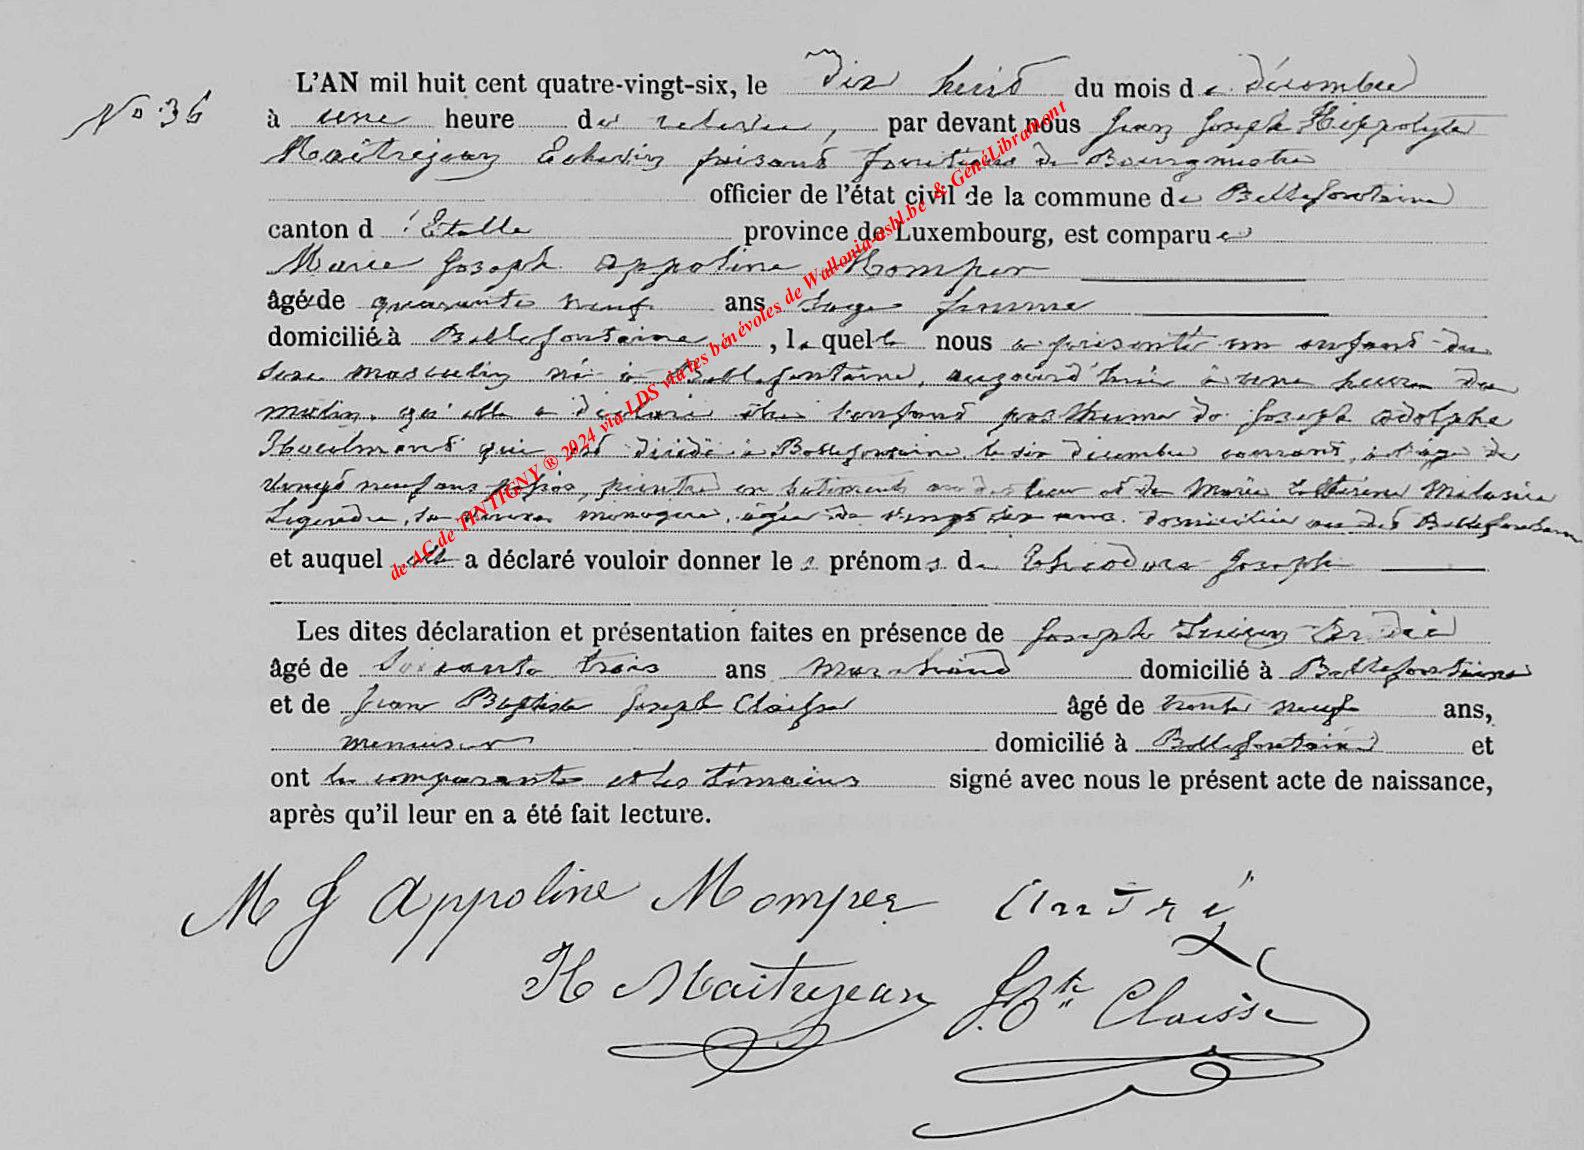 No 36
L'AN mil huit cent quatre-vingt-six, le dix huit du mois de décembre
à une heure de relevée, par devant nous Jean Joseph Hippolyte
Maîtrejean Echevin faisant fonctions de Bourgmestre
officier de l'état civil de la commune de Bellefontaine
canton d'Etalle province de Luxembourg, est comparue
Marie Joseph Appoline Momper
âgée de quarante neuf ans, sage femme
domiciliée à Bellefontaine, laquelle nous a présenté un enfant du
sexe masculin né à Bellefontaine, aujourd'hui à une heure du
matin, qu'elle a déclaré être l'enfant posthume de Joseph Adolphe
qui est décédé à Bellefontaine le six décembre courant, à l'âge de
vingt neuf ans, peintre en batiments au dit lieu et de Marie Catherine
sa veuve ménagère, âgée de vingt six ans, domiciliée au dit Bellefontaine
et auquel elle a déclaré vouloir donner les prénoms de Théodore Joseph
Les dites déclaration et présentation faites en présence de Joseph
âgé de soixante trois ans marchand domicilié à Bellefontaine
et de Jean Baptiste Joseph Claisse âgé de trente neuf ans,
menuisier domicilié à Bellefontaine et
ont la comparante et les témoins signé avec nous le présent acte de naissance,
après qu'il leur en a été fait lecture.
M J Appoline Momper
H Maîtrejean J. Bte Claisse
de AC de TINTIGNY ® 2024 via LDS via les bénévoles de Wallonia-asbl.be & GénéLibramont